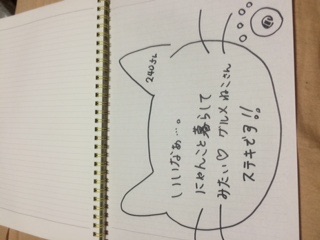 240ch
いいなぁ…。
にゃんこと暮らして
みたい♡グルメねこさん
ステキです!!